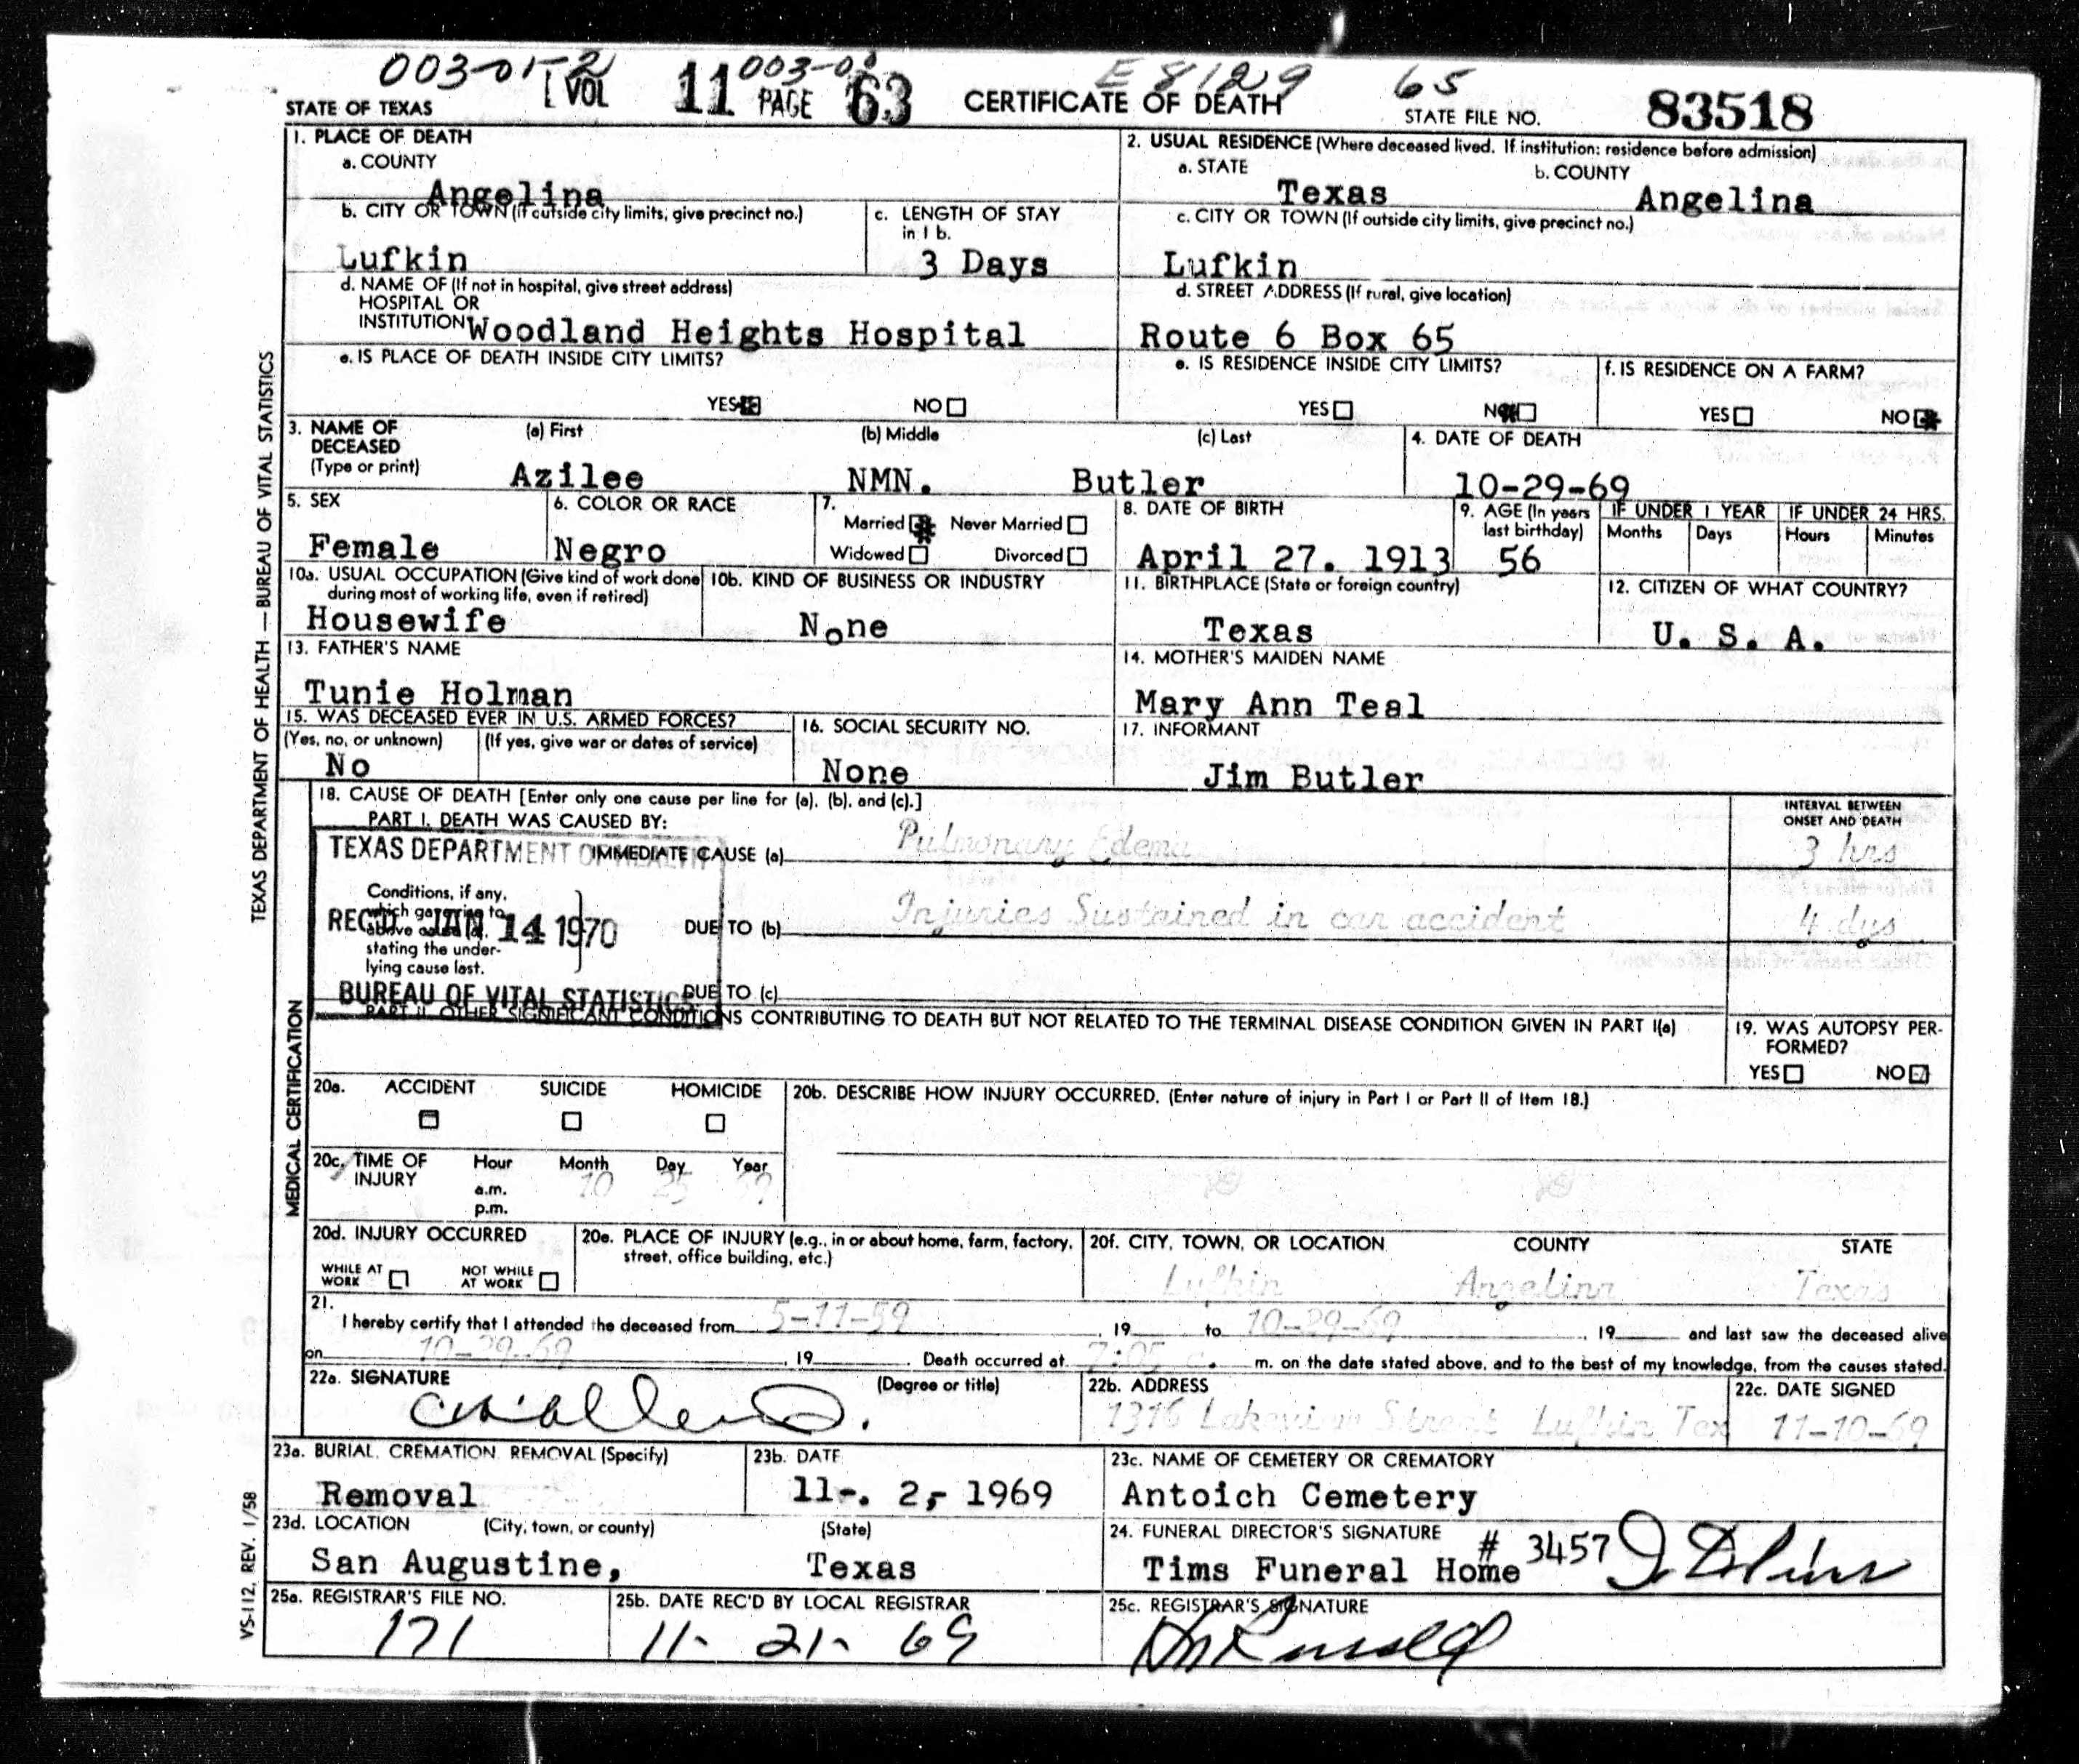 003-01-2 003-01 E 8129 65
STATE OF TEXAS VOL 11 PAGE 63 CERTIFICATE OF DEATH STATE FILE NO. 83518
1. PLACE OF DEATH
a. COUNTY
Angelina
2. USUAL RESIDENCE (Where deceased lived. If institution: residence before admission)
a. STATE b. COUNTY
Texas Angelina
b. CITY OR TOWN (If outside city limits, give precinct no.)
Lufkin
c. LENGTH OF STAY
in 1 b.
3 Days
c. CITY OR TOWN (If outside city limits, give precinct no.)
Lufkin
d. NAME OF (If not in hospital, give street address)
HOSPITAL OR
INSTITUTION Woodland Heights Hospital
d. STREET ADDRESS (If rural, give location)
Route 6 Box 65
e. IS PLACE OF DEATH INSIDE CITY LIMITS?
YES NO
e. IS RESIDENCE INSIDE CITY LIMITS?
YES NO
f. IS RESIDENCE ON A FARM?
YES NO
3. NAME OF
DECEASED
(Type or print)
(a) First (b) Middle (c) Last
Azilee NMN. Butler
4. DATE OF DEATH
10-29-69
5. SEX
Female
6. COLOR OR RACE
Negro
7.
Married Never Married
Widowed Divorced
8. DATE OF BIRTH
April 27. 1913
9. AGE (In years
last birthday)
56
IF UNDER 1 YEAR
Months Days
IF UNDER 24 HRS.
Hours Minutes
10a. USUAL OCCUPATION (Give kind of work done
during most of working life, even if retired)
Housewife
10b. KIND OF BUSINESS OR INDUSTRY
None
11. BIRTHPLACE (State or foreign country)
Texas
12. CITIZEN OF WHAT COUNTRY?
U. S. A.
13. FATHER'S NAME
Tunie Holman
14. MOTHER'S MAIDEN NAME
Mary Ann Teal
15. WAS DECEASED EVER IN U.S. ARMED FORCES?
(Yes, no, or unknown) (If yes, give war or dates of service)
No
16. SOCIAL SECURITY NO.
None
17. INFORMANT
Jim Butler
18. CAUSE OF DEATH [Enter only one cause per line for (a), (b), and (c).]
INTERVAL BETWEEN
ONSET AND DEATH
PART I. DEATH WAS CAUSED BY:
IMMEDIATE CAUSE (a) Pulmonary Edema 3 hrs
Conditions, if any,
which gave rise to
above cause (a),
stating the under-
lying cause last.
DUE TO (b) Injuries Sustained in car accident 4 dys
DUE TO (c)
TEXAS DEPARTMENT OF HEALTH
REC'D JAN 14 1970
BUREAU OF VITAL STATISTICS
PART II. OTHER SIGNIFICANT CONDITIONS CONTRIBUTING TO DEATH BUT NOT RELATED TO THE TERMINAL DISEASE CONDITION GIVEN IN PART I(a)
19. WAS AUTOPSY PER-
FORMED?
YES NO
20a. ACCIDENT SUICIDE HOMICIDE
20b. DESCRIBE HOW INJURY OCCURRED. (Enter nature of injury in Part I or Part II of Item 18.)
20c. TIME OF
INJURY
Hour Month Day Year
a.m.
p.m.
10 25 69
20d. INJURY OCCURRED
WHILE AT
WORK
NOT WHILE
AT WORK
20e. PLACE OF INJURY (e.g., in or about home, farm, factory,
street, office building, etc.)
20f. CITY, TOWN, OR LOCATION COUNTY STATE
Lufkin Angelina Texas
21.
I hereby certify that I attended the deceased from 5-11-59, 19 to 10-29-69, 19 and last saw the deceased alive
on 10-29-69, 19 . Death occurred at 7:05 a. m. on the date stated above, and to the best of my knowledge, from the causes stated.
22a. SIGNATURE (Degree or title)
22b. ADDRESS
1316 Lakeview Street Lufkin Tex
22c. DATE SIGNED
11-10-69
23a. BURIAL, CREMATION, REMOVAL (Specify)
Removal
23b. DATE
11-. 2,- 1969
23c. NAME OF CEMETERY OR CREMATORY
Antoich Cemetery
23d. LOCATION (City, town, or county) (State)
San Augustine, Texas
24. FUNERAL DIRECTOR'S SIGNATURE
Tims Funeral Home # 3457
25a. REGISTRAR'S FILE NO.
171
25b. DATE REC'D BY LOCAL REGISTRAR
11- 21- 69
25c. REGISTRAR'S SIGNATURE
TEXAS DEPARTMENT OF HEALTH — BUREAU OF VITAL STATISTICS
MEDICAL CERTIFICATION
VS-112, REV. 1/58